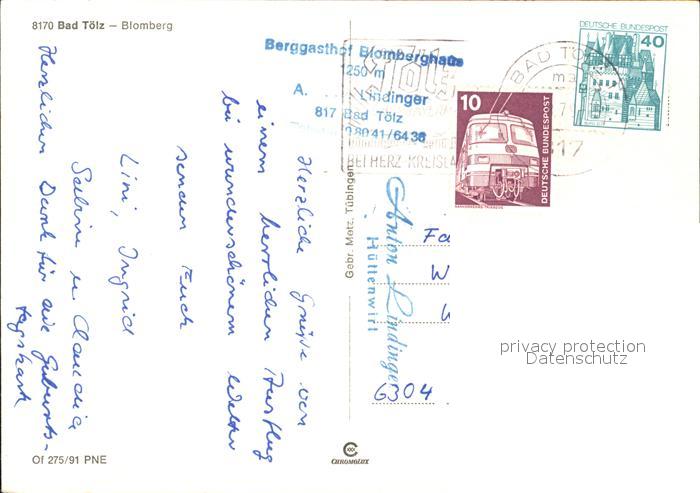 8170 Bad Tölz — Blomberg
Herzliche Grüße von
einem herrlichen Ausflug
bei wunderschönem Wetter
senden Euch
Lini, Ingrid
Sabine u. Claudia
Herzlichen Dank für die Geburts-
tagskarte
Of 275/91 PNE
Gebr. Metz, Tübingen
CHROMOLUX
Berggasthof Blomberghaus
1250 m
A. Lindinger
817 Bad Tölz
BEI HERZ KREISL
BAD TÖL
817
10
DEUTSCHE BUNDESPOST
DEUTSCHE BUNDESPOST
40
Anton Lindinger
Hüttenwirt
Fa
W
6304
privacy protection
Datenschutz